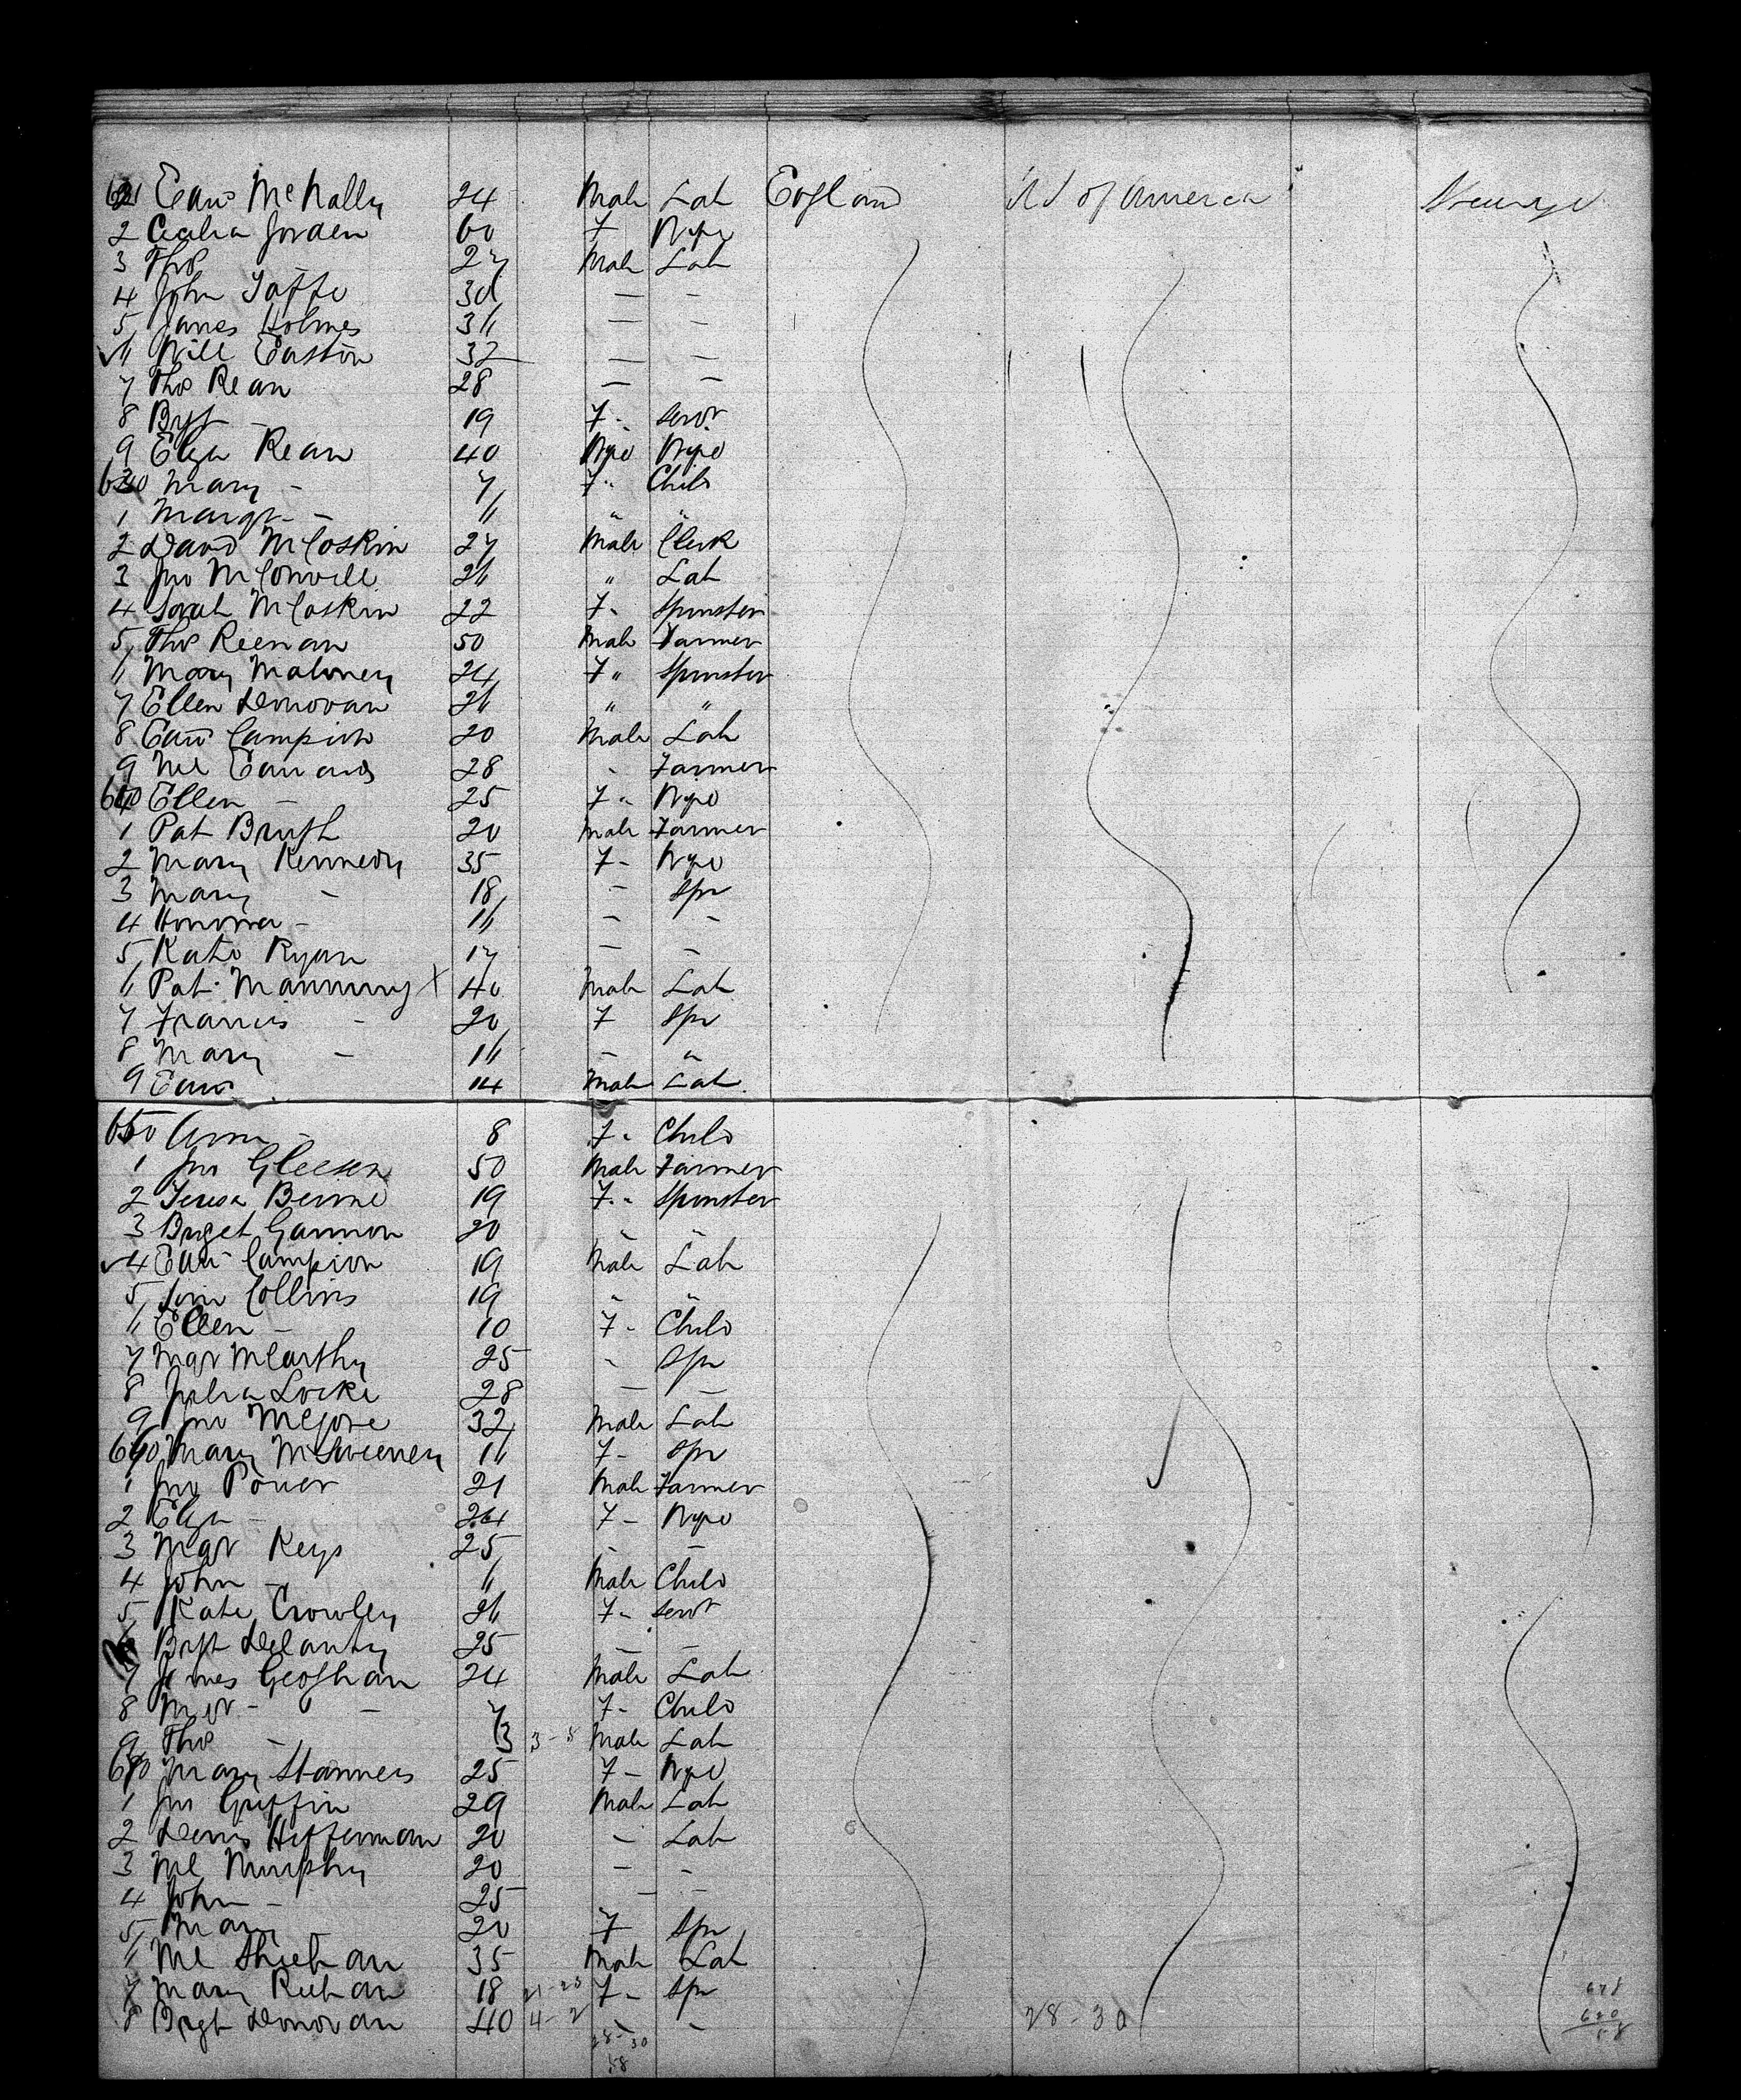 621 Edwd McNally 24 Male Lab England US of America Steerage
2 Cecilia Jorden 60 F Wife
3 Thos 27 Male Lab
4 John Taffe 30 — —
5 James Holmes 36 — —
6 Will Easton 32 — —
7 Thos Kean 28 — —
8 Bgt - 19 F " Servt
9 Eliza Kean 40 Wife Wife
630 Mary - 7 F " Child
1 Margt - 6 " "
2 David McCoskin 27 Male Clerk
3 Jno McConvill 26 " Lab
4 Sarah McCoskin 22 F " Spinster
5 Thos Keenan 50 Male Farmer
6 Mary Maloney 24 F " Spinster
7 Ellen Donovan 26 " "
8 Edwd Campion 20 Male Lab
9 Ml Edwards 28 " Farmer
640 Ellen - 25 F " Wife
1 Pat 20 Male Farmer
2 Mary Kennedy 35 F - Wife
3 Mary - 18 - Spr
4 Honora - 16 - -
5 Kate Ryan 17 — -
6 Pat Manning X 40 Male Lab
7 Francis - 20 F Spr
8 Mary - 16 - "
9 Edwd 14 Male Lab
650 Ann - 8 F " Child
1 Jno Gleeson 50 Male Farmer
2 Teresa Beirne 19 F " Spinster
3 Briget Gannon 20 " "
4 Edwd Campion 19 Male Lab
5 Jim Collins 19 " "
6 Ellen - 10 F - Child
7 Mar McCarthy 25 " Spr
8 Julia Locke 28 — —
9 Jno 32 Male Lab
660 Mary McSweeney 16 F - Spr
1 Jno Power 21 Male Farmer
2 Eliza - 24 F - Wife
3 Mar Keys 25 - —
4 John - 6 Male Child
5 Kate Crowley 26 F - Servt
6 Bgt Delanty 25 — -
7 James Geoghan 24 Male Lab
8 Mar - - 7 F - Child
9 Thos - 3 3-8 Male Lab
670 Mary Stanners 25 F - Wife
1 Jno Griffin 29 Male Lab
2 Denis Heffernan 20 - Lab
3 Ml Murphy 20 — -
4 John - 25 — —
5 Mary - 20 F Spr
6 Ml Sheehan 35 Male Lab
7 Mary Keehan 18 21-23 F - Spr
8 Brgt Donovan 40 4-2 - -
28-30
58
28-30
678
620
58